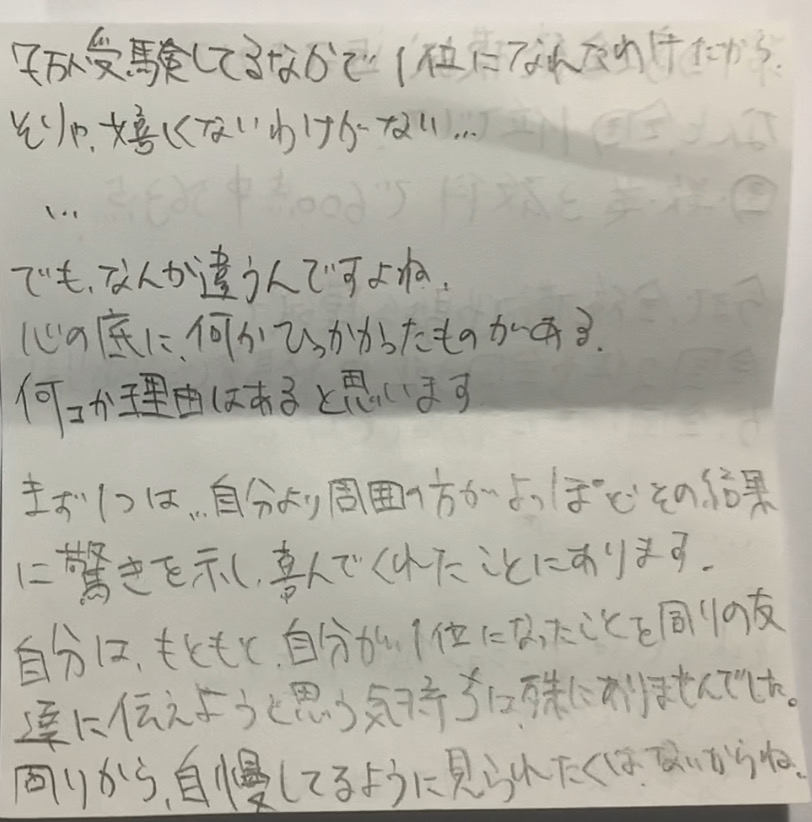 7万人受験してるなかで1位になれたわけだから、
そりゃ、嬉しくないわけがない…
…
でも、なんか違うんですよね、
心の底に、何かひっかかったものがある、
何コか理由はあると思います
まず1つは、…自分より周囲の方がよっぽどその結果
に驚きを示し、喜んでくれたことにあります。
自分は、もともと、自分が、1位になったことを周りの友
達に伝えようと思う気持ちは、殊にありませんでした。
周りから、自慢してるように見られたくは、ないからね、